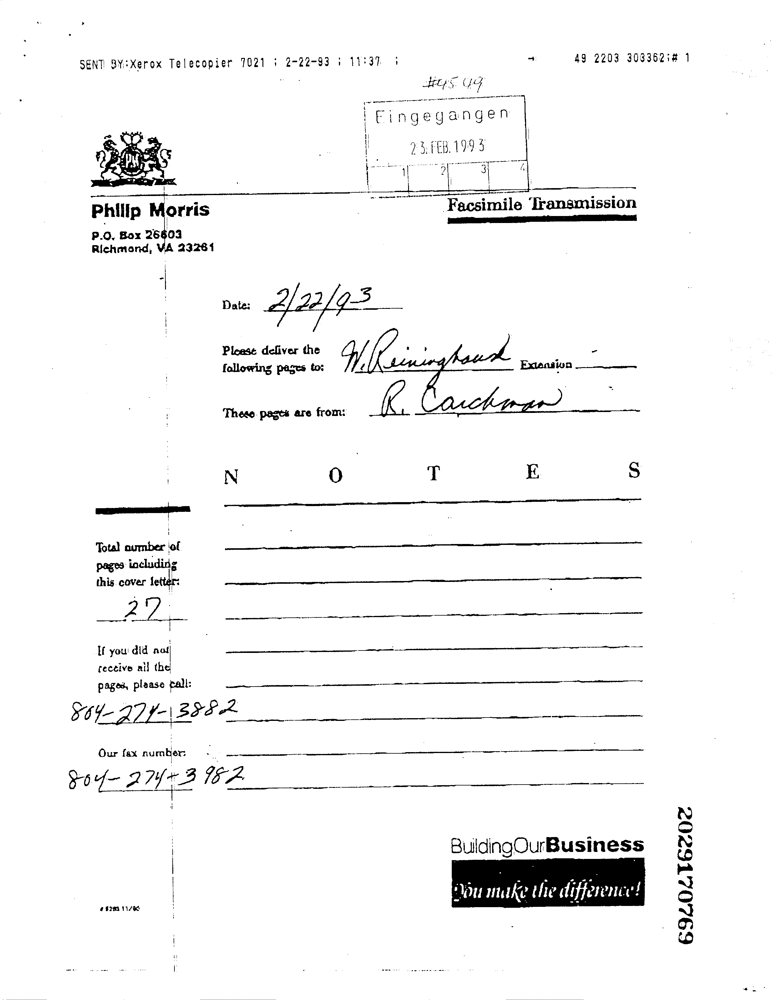 SENT BY:Xerox Telecopier 7021 ; 2-22-93 ; 11:37 ; → 49 2203 303362;# 1
#45 49
Eingegangen
23. FEB. 1993
1 2 3 4
Philip Morris
Facsimile Transmission
P.O. Box 26603
Richmond, VA 23261
Date: 2/22/93
Please deliver the
following pages to: W. Reininghaus Extension
These pages are from: R. Carchman
N O T E S
Total number of
pages including
this cover letter:
27
If you did not
receive all the
pages, please call:
804-274-3882
Our fax number:
804-274-3982
BuildingOurBusiness
You make the difference!
2029170769